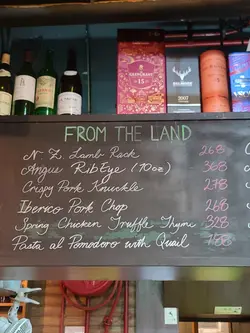 FROM THE LAND
N Z. Lamb Rack 268
Angus RibEye (10oz) 368
Crispy Pork Knuckle 278
Iberico Pork Chop 268
Spring Chicken Truffle Thyme 328
Pasta al Pomodoro with Quail
15